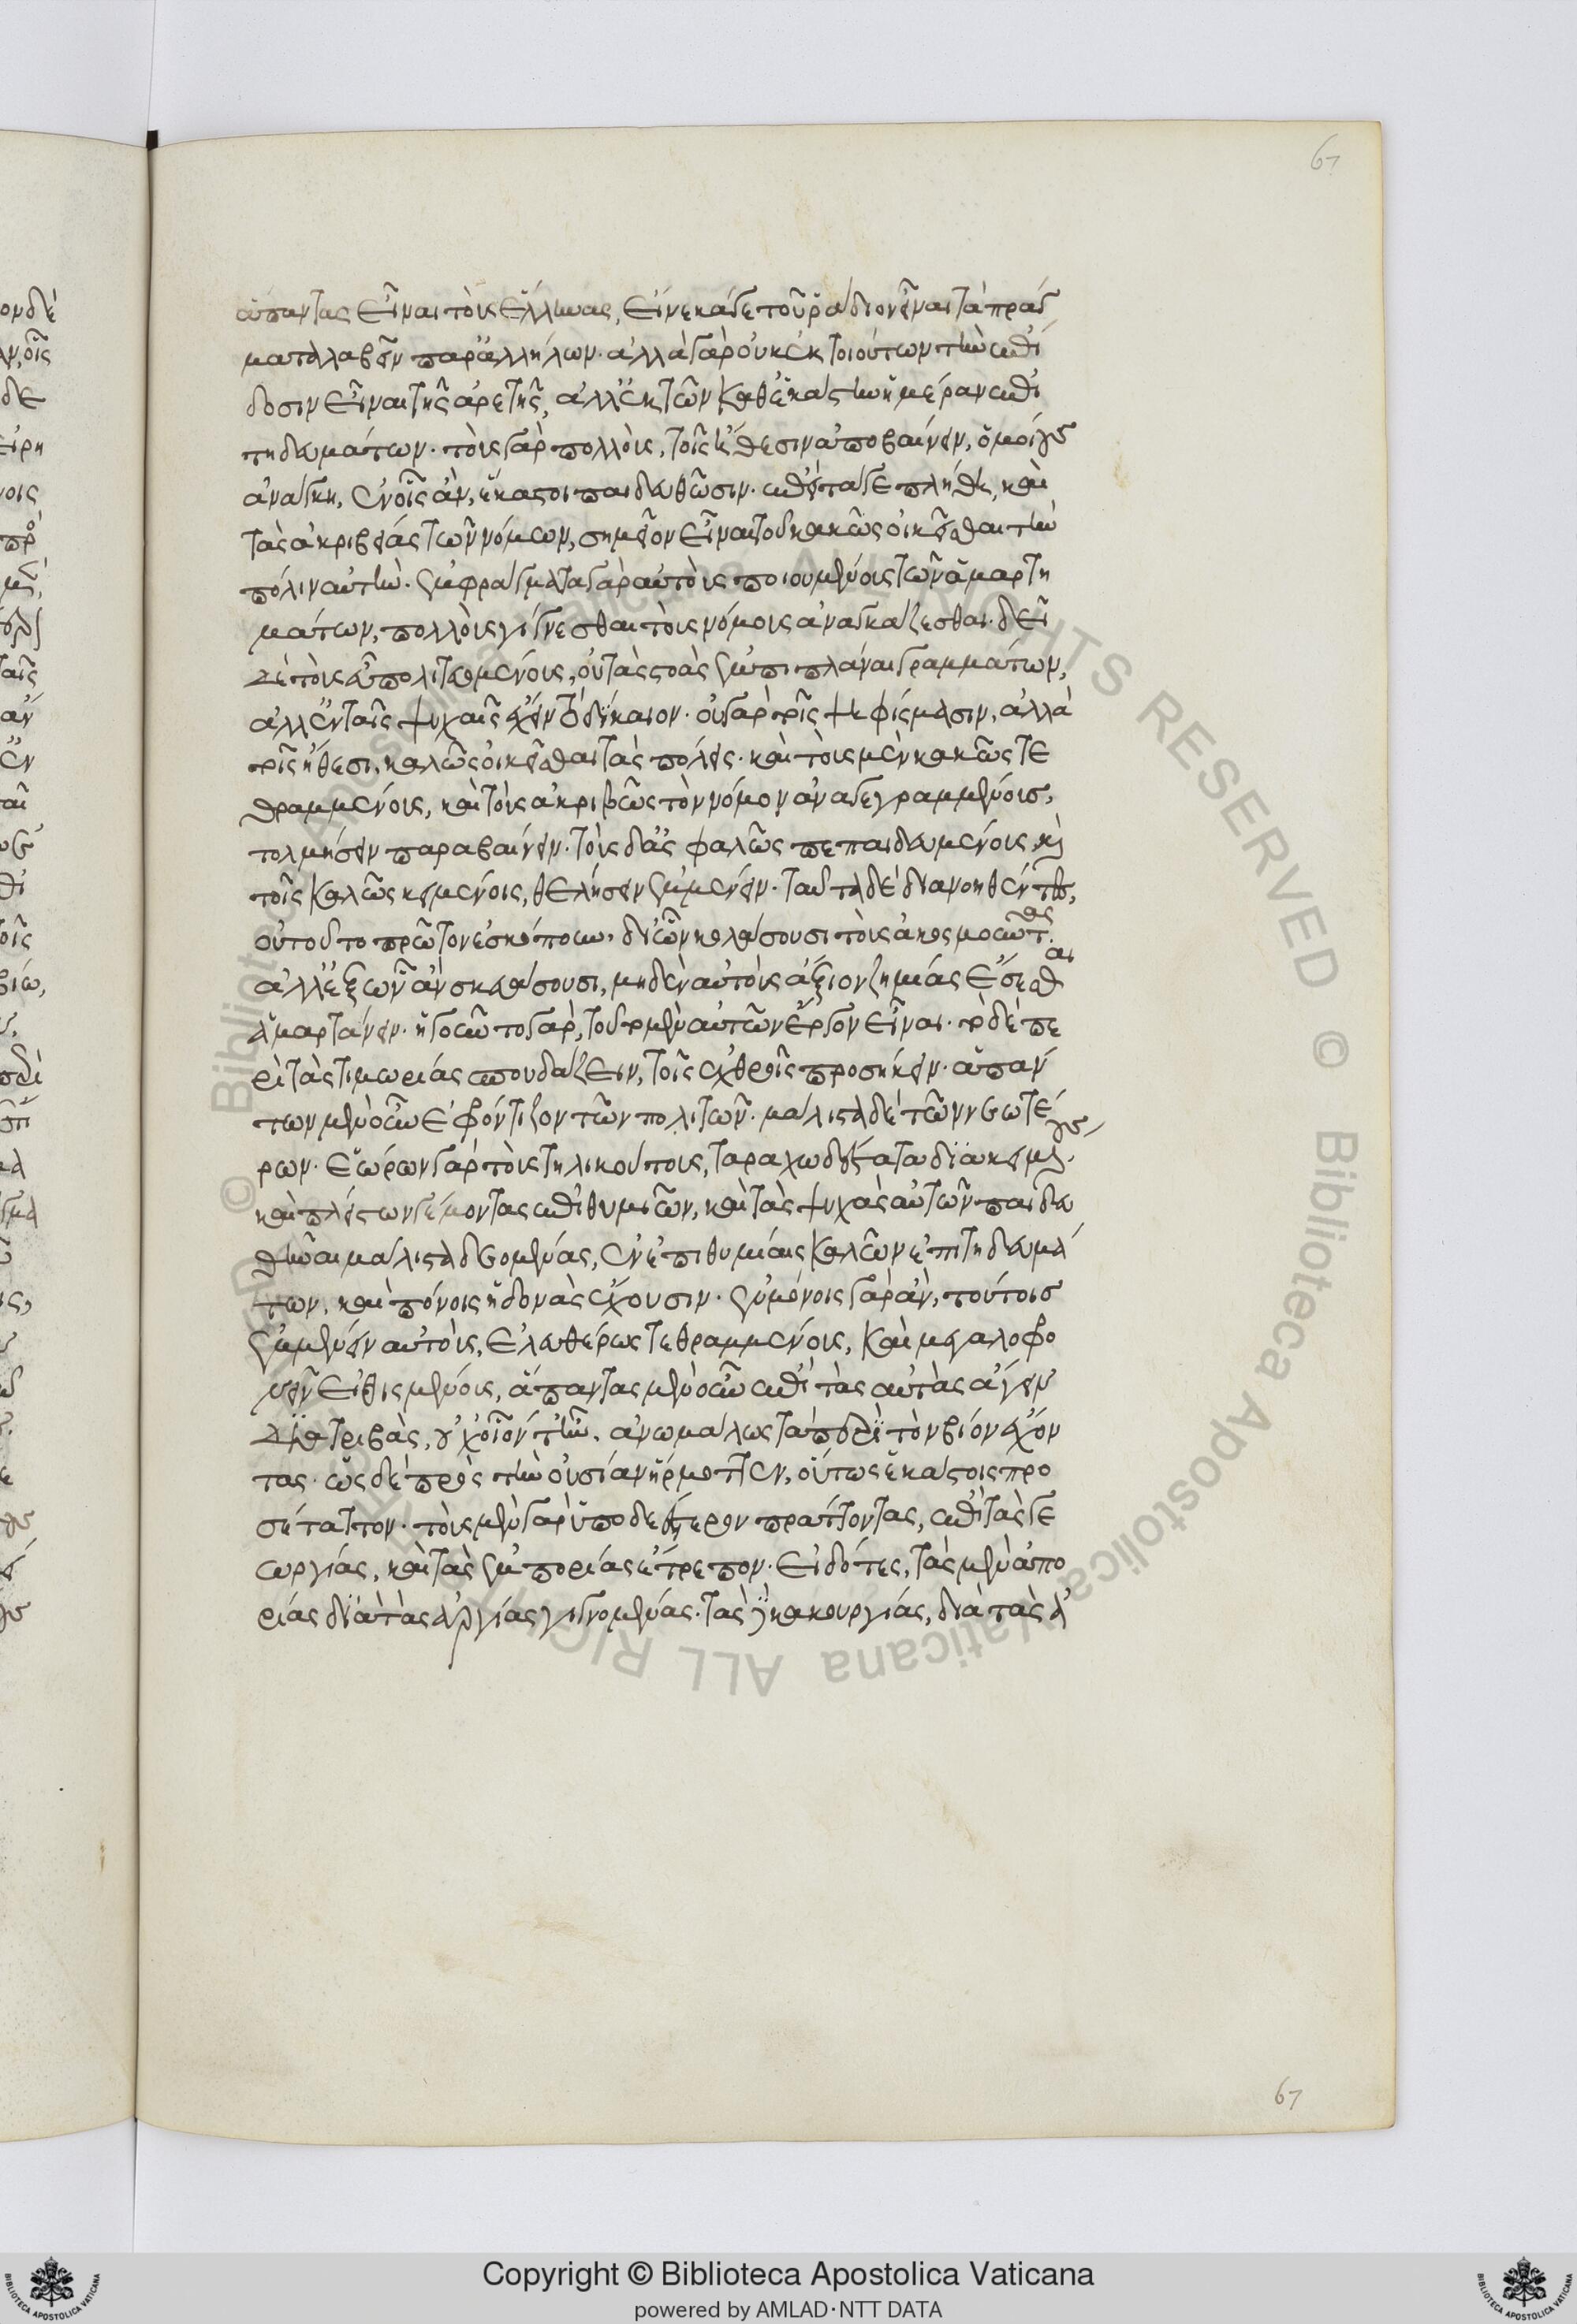 67
ἅπαντας εἶναι τοὺς ἕλληνας, εἵνεκά γε τοῦ ῥάδιον εἶναι τὰ γράμ
ματα λαβεῖν παρ' ἀλλήλων. ἀλλὰ γὰρ οὐκ ἐκ τοιούτων τὴν ἐπί
δοσιν εἶναι τῆς ἀρετῆς, ἀλλ' ἐκ τῶν καθ' ἑκάστην ἡμέραν ἐπι
τηδευμάτων. τοὺς γὰρ πολλοὺς, τοῖς ἤθεσιν ἀποβαίνειν, ὁμοίους
ἀνάγκη, ἐν οἷς ἂν, ἕκαστοι παιδευθῶσιν. ἔπειτά γε πλήθη, καὶ
τὰς ἀκριβείας τῶν νόμων, σημεῖον εἶναι τοῦ κακῶς οἰκεῖσθαι τὴν
πόλιν αὐτὴν. ἐμφράγματα γὰρ αὐτοὺς ποιουμένους τῶν ἁμαρτη
μάτων, πολλοὺς τίθεσθαι τοὺς νόμους ἀναγκάζεσθαι. δεῖ
δὲ τοὺς εὖ πολιτευομένους, οὐ τὰς στοὰς ἐμπιπλάναι γραμμάτων,
ἀλλ' ἐν ταῖς ψυχαῖς ἔχειν τὸ δίκαιον. οὐ γὰρ τοῖς ψηφίσμασιν, ἀλλὰ
τοῖς ἤθεσι, καλῶς οἰκεῖσθαι τὰς πόλεις. καὶ τοὺς μὲν κακῶς τε
θραμμένους, καὶ τοὺς ἀκριβῶς τὸν νόμον ἀναγεγραμμένους,
τολμήσειν παραβαίνειν. τοὺς δ' ἀσφαλῶς πεπαιδευμένους, καὶ
τοῖς καλῶς κειμένοις, θελήσειν ἐμμένειν. ταῦτα δὲ διανοηθέντες,
οὐ τοῦτο πρῶτον ἐσκόπουν, δι' ὧν κολάσουσι τοὺς ἀκοσμοῦντας
ἀλλ' ἐξ ὧν ἂν σκευάσουσι, μηδὲν αὐτοὺς ἄξιον ζημίας ἔσεσθαι
ἁμαρτάνειν. ἡγοῦντο γὰρ, τοῦτο μὲν αὐτῶν ἔργον εἶναι. τὸ δὲ πε
ρὶ τὰς τιμωρίας σπουδάζειν, τοῖς ἐχθροῖς προσήκειν. ἁπάν
των μὲν οὖν ἐφρόντιζον τῶν πολιτῶν. μάλιστα δὲ τῶν νεωτέ
ρων. ἑώρων γὰρ τοὺς τηλικούτους, ταραχωδέστατα διακειμένους
καὶ πλείστων γέμοντας ἐπιθυμιῶν, καὶ τὰς ψυχὰς αὐτῶν παιδευ
θῆναι μάλιστα δεομένας, ἐν ἐπιθυμίαις καλῶν ἐπιτηδευμά
των, καὶ πόνοις ἡδονὰς ἔχουσιν. ἐν μόνοις γὰρ ἂν, τούτοις
ἐμμένειν αὐτοὺς, ἐλευθέρως τεθραμμένους, καὶ μεγαλοφρο
νεῖν εἰθισμένους, ἅπαντας μὲν οὖν ἐπὶ τὰς αὐτὰς ἄγειν
διατριβὰς, οὐχ οἷόν τ' ἦν, ἀνωμάλως τὰ περὶ τὸν βίον ἔχον
τας. ὡς δὲ πρὸς τὴν οὐσίαν ἥρμοττεν, οὕτως ἑκάστοις προ
σέταττον. τοὺς μὲν γὰρ ὑποδεέστερον πράττοντας, ἐπὶ τὰς γε
ωργίας, καὶ τὰς ἐμπορίας ἔτρεπον. εἰδότες, τὰς μὲν ἀπο
ρίας διὰ τὰς ἀργίας γιγνομένας. τὰς δὲ κακουργίας, διὰ τὰς ἀ
67
© Biblioteca Apostolica Vaticana ALL RIGHTS RESERVED © Biblioteca Apostolica Vaticana ALL RIGHTS RESERVED
Copyright © Biblioteca Apostolica Vaticana
powered by AMLAD·NTT DATA